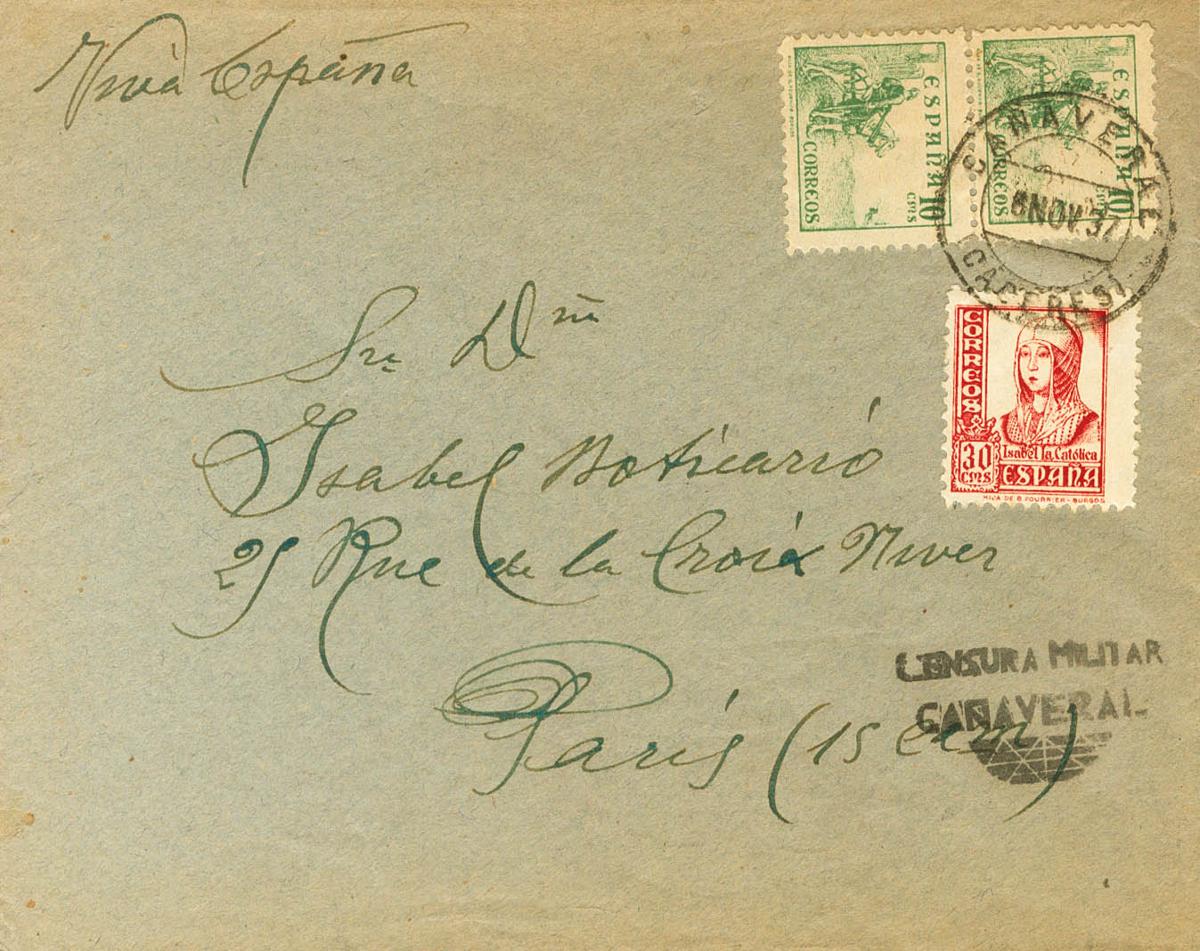 Viva España
ESPAÑA
10
CTMS
CORREOS
ESPAÑA
10
CORREOS
CAÑAVERAL
6 NOV. 37
(CACERES)
CORREOS
30
CMS
Isabel la Católica
ESPAÑA
HIJA DE B. FOURNIER - BURGOS
Sra Dña
Isabel Boticario
25 Rue de la Croix Niver
CENSURA MILITAR
CAÑAVERAL
París (15 eem)